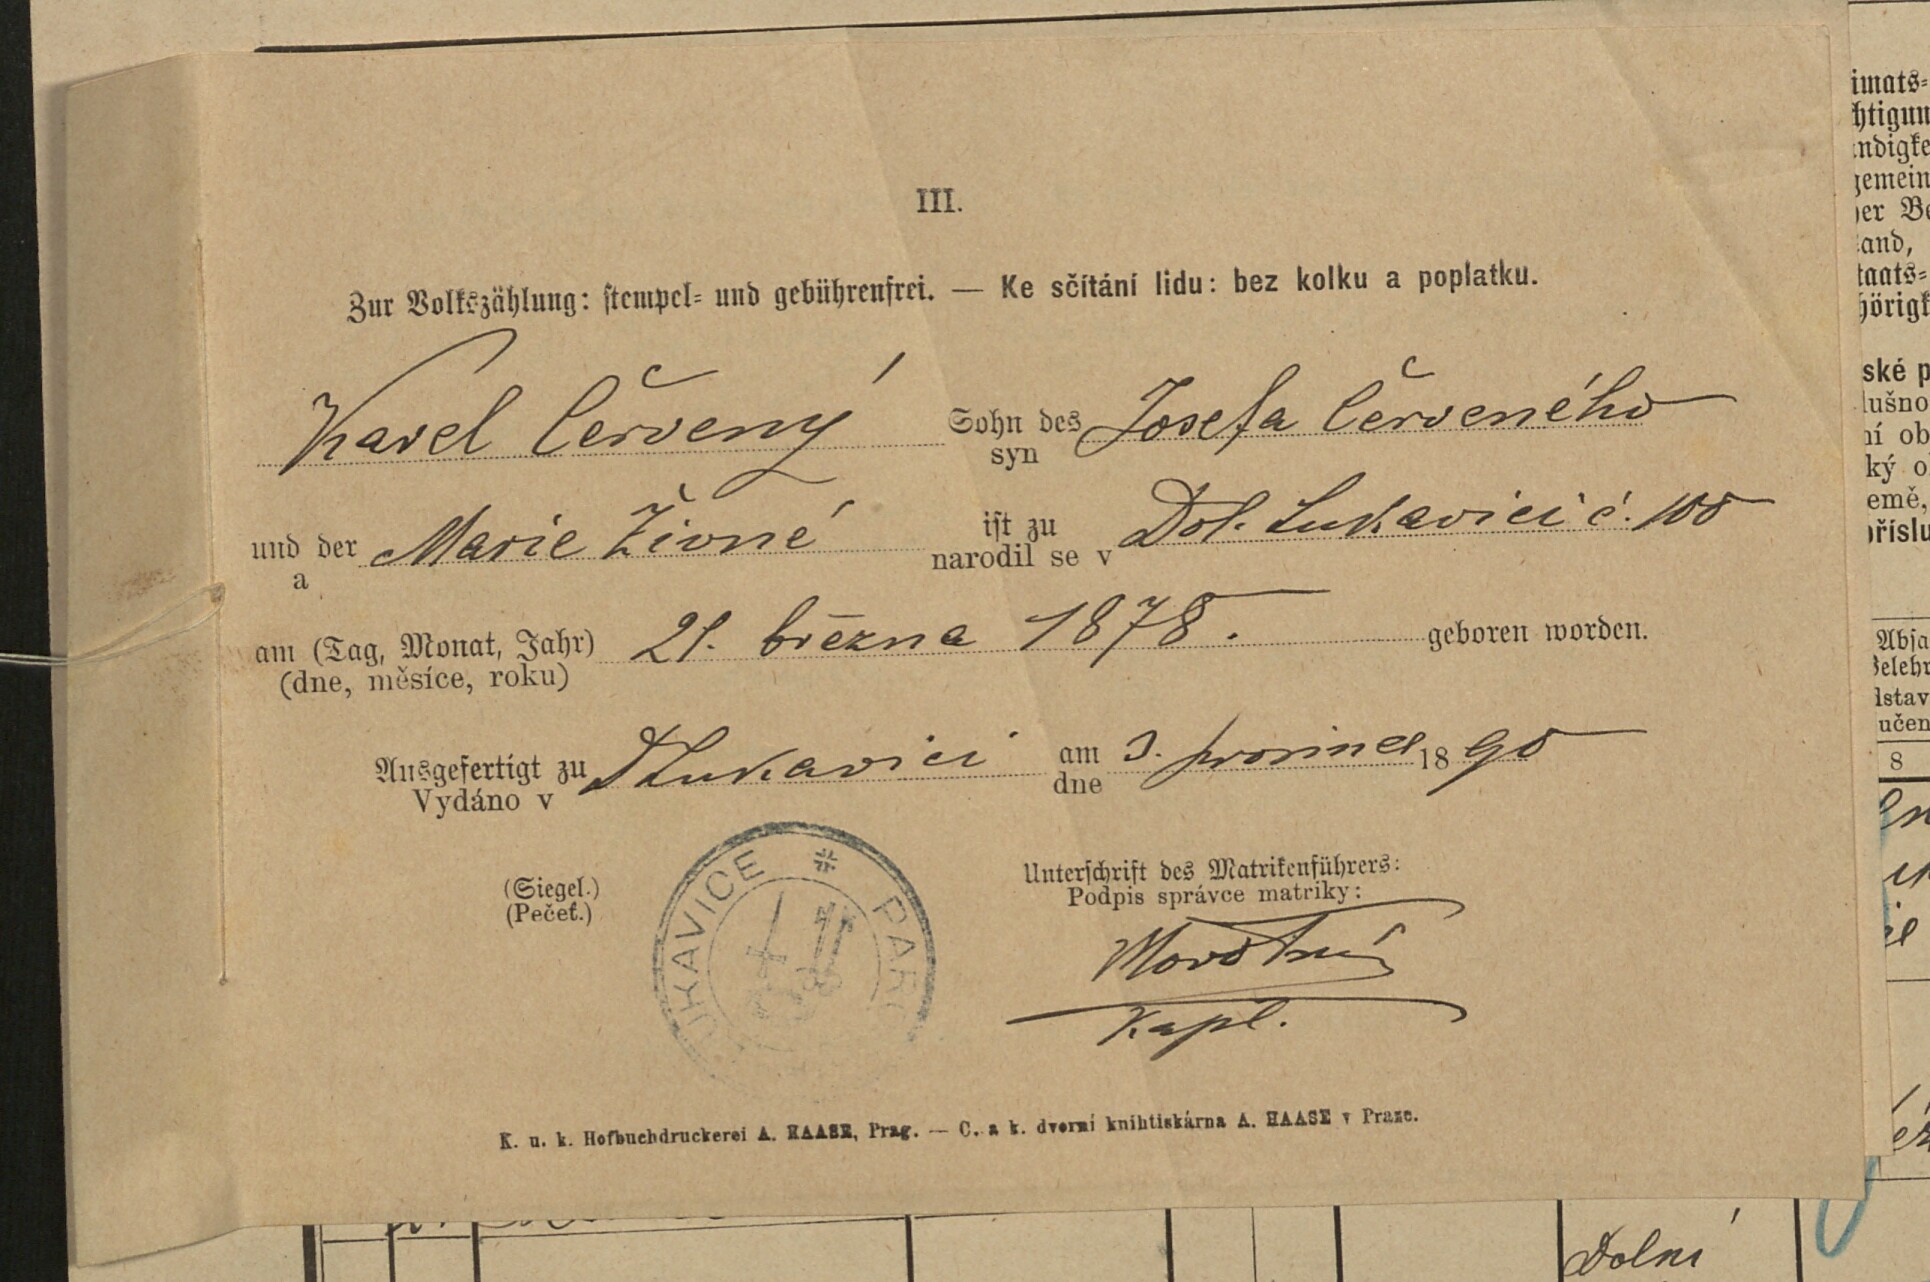 III.
Zur Volkszählung: stempel- und gebührenfrei. — Ke sčítání lidu: bez kolku a poplatku.
Karel Červený Sohn des Josefa Červeného
syn
und der Marie Živné ist zu Dol. Lukavici č. 100
a narodil se v
am (Tag, Monat, Jahr) 21. března 1878. geboren worden.
(dne, měsíce, roku)
Ausgefertigt zu DLukavici am 3. prosince 1890
Vydáno v dne
(Siegel.)
(Pečeť.)
UKAVICE * PAR
Unterschrift des Matrikenführers:
Podpis správce matriky:
Novotný
Kapl.
K. u. k. Hofbuchdruckerei A. HAASE, Prag. — C. a k. dvorní knihtiskárna A. HAASE v Praze.
imats-
htigun
ndigke
gemein
er Be
and,
taats-
hörigk
ské p
lušno
ní ob
ký o
emě,
příslu
Absa
Belehr
dstav
učen
8
Dolní